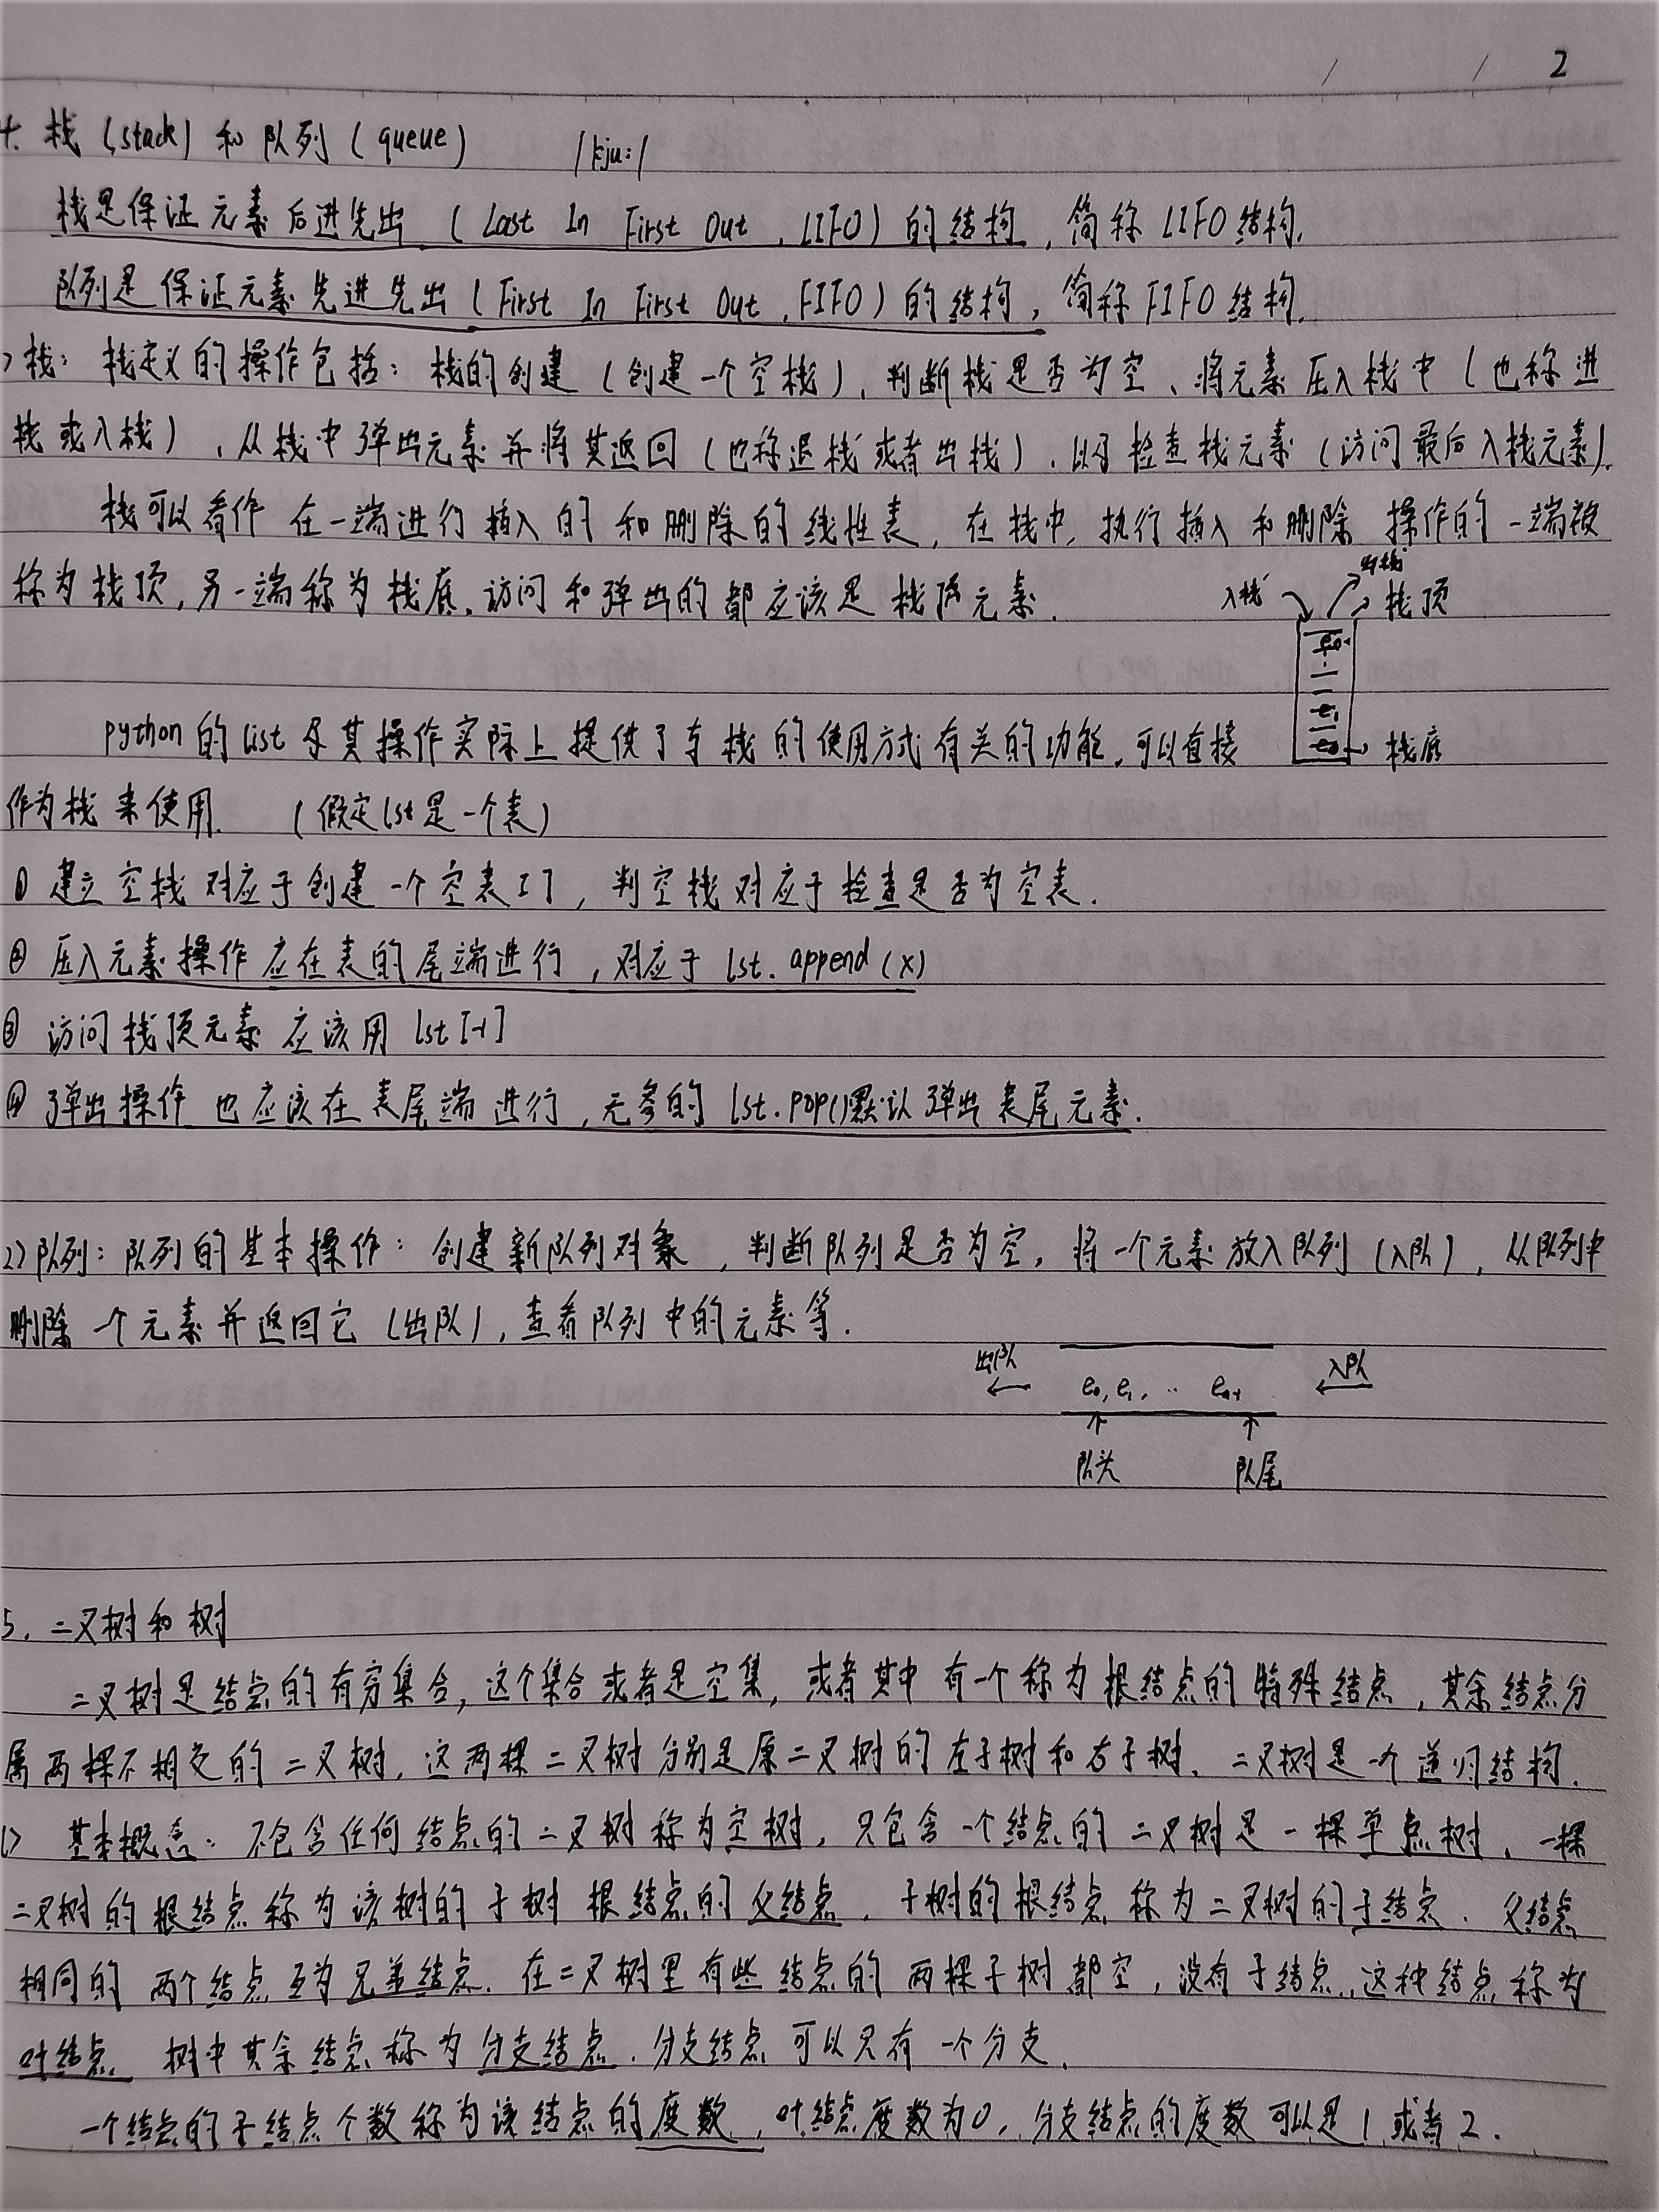 2
4. 栈 (stack) 和 队列 (queue) /kju:/
栈是保证元素后进先出 (Last In First Out, LIFO) 的结构, 简称 LIFO 结构.
队列是保证元素先进先出 (First In First Out, FIFO) 的结构, 简称 FIFO 结构.
栈: 栈定义的操作包括: 栈的创建 (创建一个空栈), 判断栈是否为空、将元素压入栈中 (也称进
栈或入栈), 从栈中弹出元素并将其返回 (也称退栈或者出栈). 以及检查栈元素 (访问最后入栈元素).
栈可以看作 在一端进行插入的和删除的线性表, 在栈中, 执行插入和删除 操作的一端被
称为栈顶, 另一端称为栈底, 访问和弹出的都应该是栈顶元素.
入栈 出栈 栈顶
e1
e0 栈底
python的list及其操作实际上提供了与栈的使用方式有关的功能, 可以直接
作为栈来使用. (假定lst是一个表)
① 建立空栈对应于创建一个空表[], 判空栈对应于检查是否为空表.
② 压入元素操作应在表的尾端进行, 对应于 lst.append(x)
③ 访问栈顶元素应该用 lst[-1]
④ 弹出操作也应该在表尾端进行, 无参的 lst.pop()默认弹出表尾元素.
2) 队列: 队列的基本操作: 创建新队列对象, 判断队列是否为空, 将一个元素放入队列 (入队), 从队列中
删除一个元素并返回它 (出队), 查看队列中的元素等.
出队 ← e0, e1, ... en-1 ← 入队
↑ ↑
队头 队尾
5. 二叉树和树
二叉树是结点的有穷集合, 这个集合或者是空集, 或者其中有一个称为根结点的特殊结点, 其余结点分
属两棵不相交的二叉树, 这两棵二叉树分别是原二叉树的左子树和右子树. 二叉树是一个递归结构.
1) 基本概念: 不包含任何结点的二叉树称为空树, 只包含一个结点的二叉树是一棵单点树, 一棵
二叉树的根结点称为该树的子树根结点的父结点, 子树的根结点称为二叉树的子结点. 父结点
相同的两个结点互为兄弟结点. 在二叉树里有些结点的两棵子树都空, 没有子结点, 这种结点称为
叶结点. 树中其余结点称为分支结点. 分支结点可以只有一个分支.
一个结点的子结点个数称为该结点的度数, 叶结点度数为0, 分支结点的度数可以是1或者2.